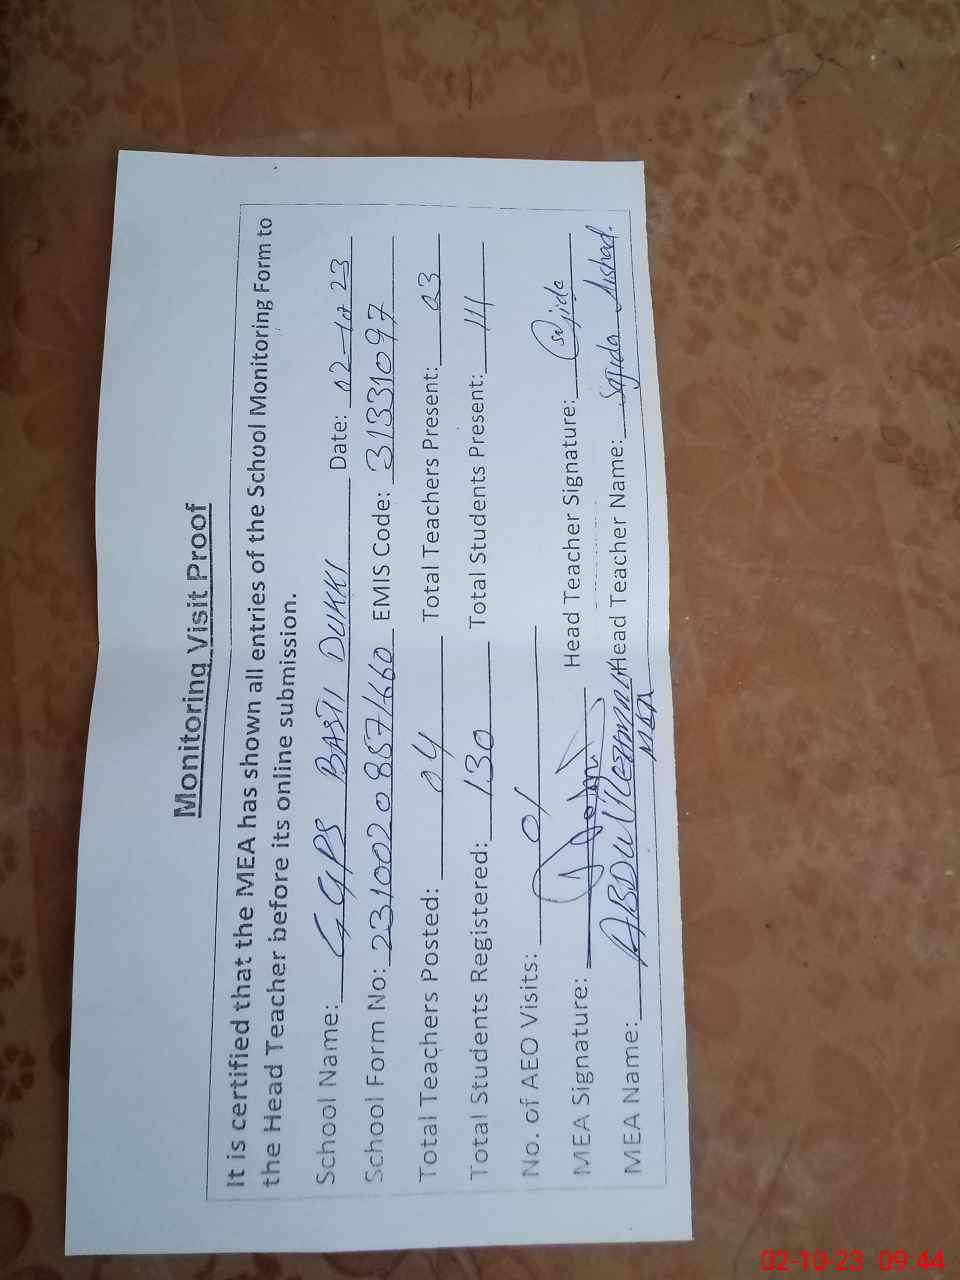 Monitoring Visit Proof
It is certified that the MEA has shown all entries of the School Monitoring Form to
the Head Teacher before its online submission.
School Name: GGPS BASTI DUKKI Date: 02-10-23
School Form No: 2310020857/660 EMIS Code: 31331097
Total Teachers Posted: 04 Total Teachers Present: 03
Total Students Registered: 130 Total Students Present: 111
No. of AEO Visits: 01
MEA Signature: Head Teacher Signature: Sajida
MEA Name: ABDul Rehman Head Teacher Name: Sajida Arshad.
MEA
02-10-23 09:44